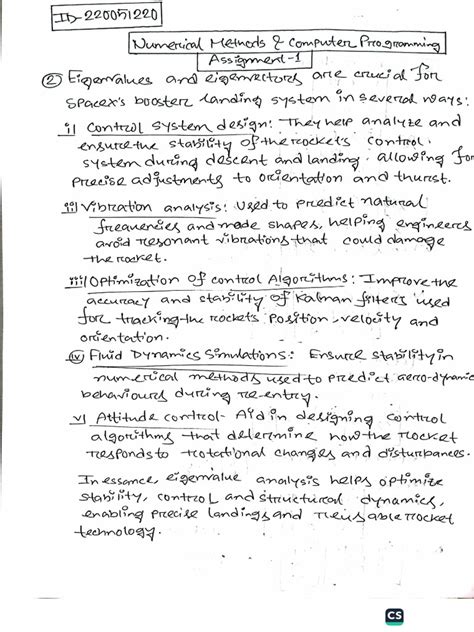 ID-220051220
Numerical Methods & Computer Programming
Assignment-1
② Eigenvalues and eigenvectors are crucial for
spacex's booster landing system in several ways:
i) Control system design: They help analyze and
ensure the stability of the rocket's control
system during descent and landing. allowing for
precise adjustments to orientation and thurst.
ii) Vibration analysis: Used to predict natural
frequencies and mode shapes, helping engineers
avoid resonant vibrations that could damage
the rocket.
iii) Optimization of control Algorithms: Improve the
accuracy and stability of Kalman filters used
for tracking the rockets position, velocity and
orientation.
iv) Fluid Dynamics Simulations: Ensure stability in
numerical methods used to predict aero-dynamic
behaviours during re-entry.
v) Attitude control- Aid in designing control
algorithms that determine how the rocket
responds to rotational changes and disturbances.
In essance, eigenvalue analysis helps optimize
stability, control and structural dynamics,
enabling precise landings and reusable rocket
technology.
CS